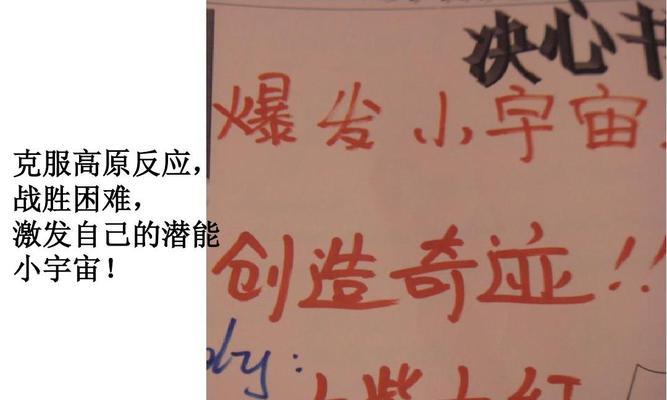 克服高原反应，
战胜困难，
激发自己的潜能
小宇宙！
决心书
爆发小宇宙
创造奇迹!!
by:
大紫大红